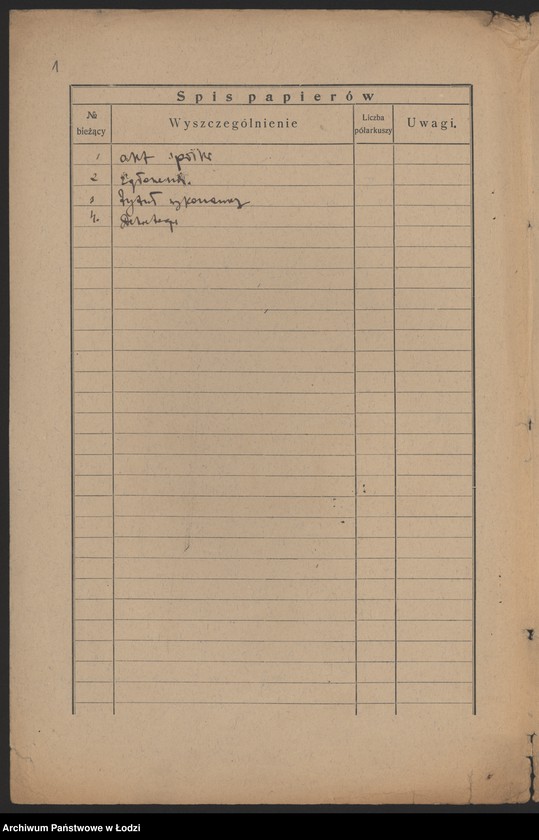 1
Spis papierów
№ bieżący
Wyszczególnienie
Liczba półarkuszy
Uwagi.
1 akt spółki
2 Zgłoszenie.
3 Tytuł wykonawczy
4.
Archiwum Państwowe w Łodzi